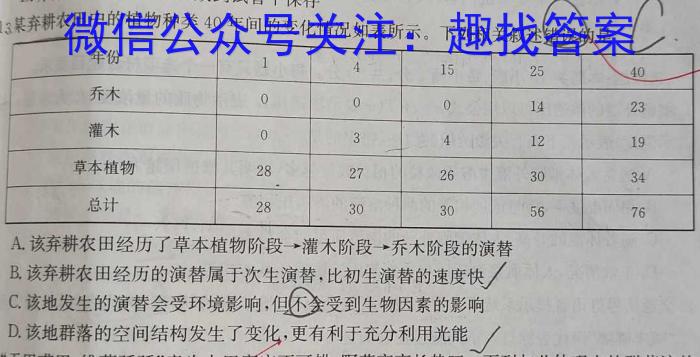 13某弃耕农田中的植物种类40年间的变化情况如表所示。下列
微信公众号关注：趣找答案
年份 1 4 15 25 40
乔木 0 0 0 14 23
灌木 0 3 4 12 19
草本植物 28 27 26 30 34
总计 28 30 30 56 76
A.该弃耕农田经历了草本植物阶段→灌木阶段→乔木阶段的演替
B.该弃耕农田经历的演替属于次生演替,比初生演替的速度快
C.该地发生的演替会受环境影响,但不会受到生物因素的影响
D.该地群落的空间结构发生了变化,更有利于充分利用光能